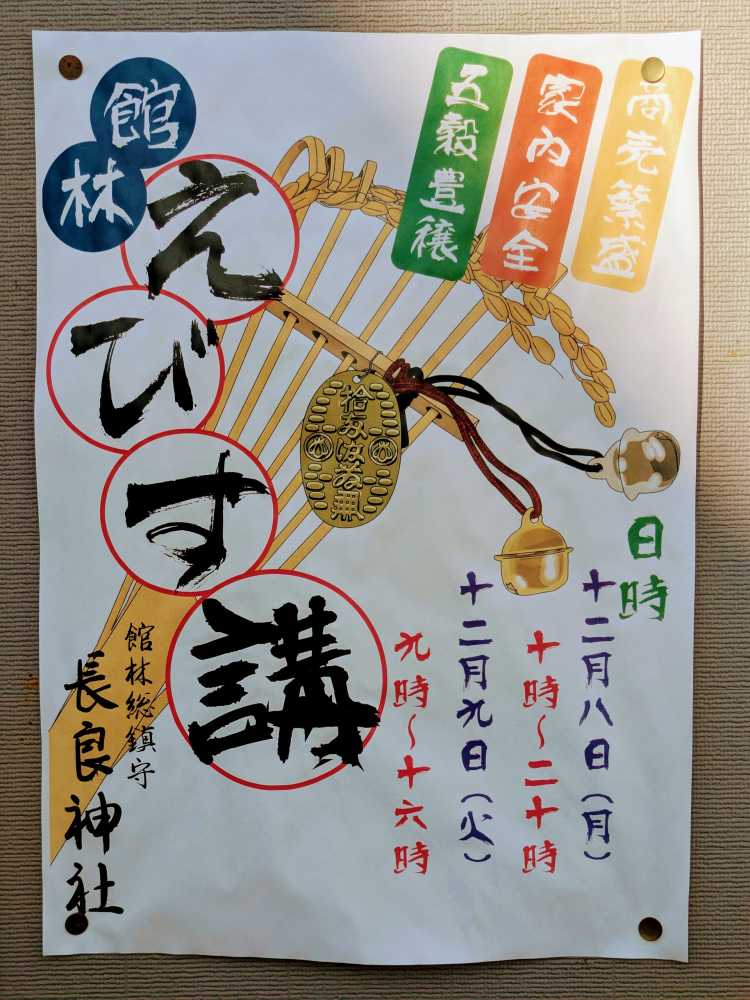 商売繁盛
家内安全
五穀豊穣
館林
えびす講
日時
十二月八日(月)
十時〜二十時
十二月九日(火)
九時〜十六時
館林総鎮守
長良神社